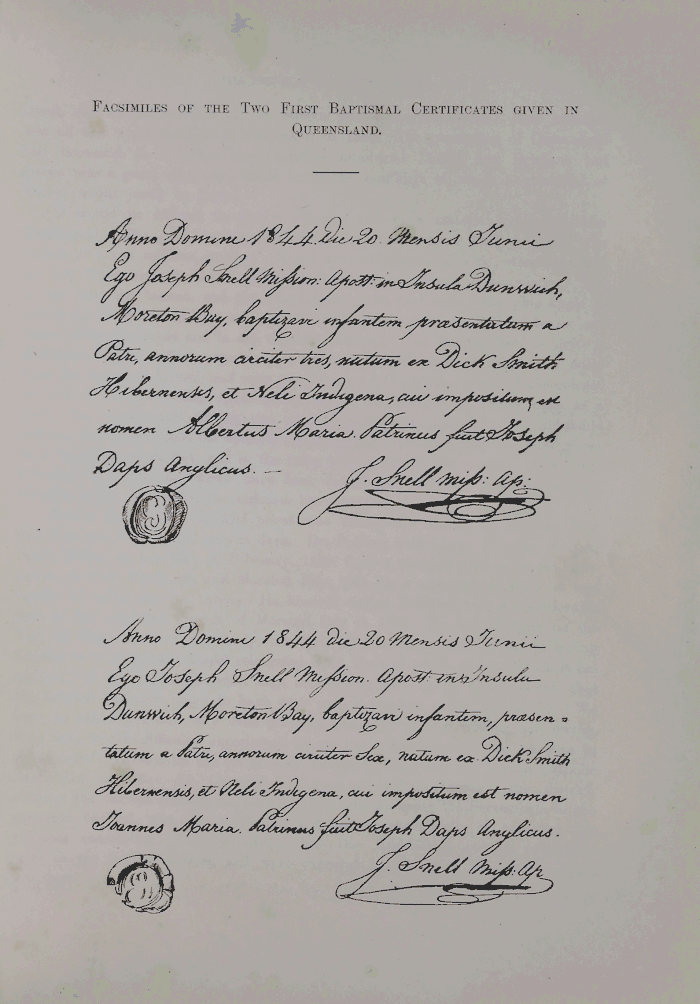 FACSIMILES OF THE TWO FIRST BAPTISMAL CERTIFICATES GIVEN IN
QUEENSLAND.
Anno Domini 1844 die 20 Mensis Junii
Ego Joseph Snell Mission: Apost: in Insula Dunwich,
Moreton Bay, baptizavi infantem præsentatum a
Patri, annorum circiter tres, natum ex Dick Smith
Hibernensis, et Neli Indigena, cui impositum est
nomen Albertus Maria. Patrinus fuit Joseph
Daps Anglicus. —
J. Snell miss: Ap:
Anno Domini 1844 die 20 Mensis Junii
Ego Joseph Snell Mission. Apost. in Insula
Dunwich, Moreton Bay, baptizavi infantem, præsen=
tatum a Patri, annorum circiter Sex, natum ex Dick Smith
Hibernensis, et Neli Indigena, cui impositum est nomen
Joannes Maria. Patrinus fuit Joseph Daps Anglicus.
J. Snell Miss: Ap